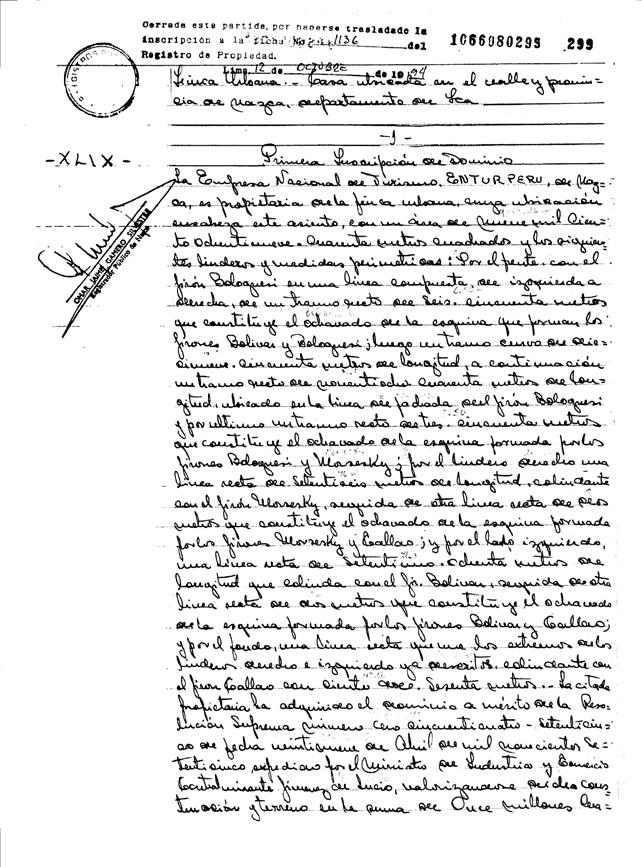 Cerrada esta partida, por haberse trasladado la
inscripción a la ficha No 1136 del
Registro de Propiedad.
1066080299 299
Lima 12 de OCTUBRE de 1994
Finca Urbana.- Casa ubicada en el valle y provin-
cia de Nazca, departamento de Ica
-1-
Primera Inscripción de Dominio
-XLIX-
La Empresa Nacional de Turismo, ENTURPERU, de Naz-
ca, es propietaria de la finca urbana, cuya ubicación
encabeza este asiento, con un área de nueve mil cien-
to ochentinueve. Cuarenta metros cuadrados y los siguien-
tes linderos y medidas perimétricas: Por el frente, con el
jirón Bolognesi en una línea compuesta, de izquierda a
derecha, de un tramo recto de seis. cincuenta metros
que constituye el ochavado de la esquina que forman los
jirones Bolivar y Bolognesi; luego un tramo curvo de diez
cinueve. cincuenta metros de longitud, a continuación
un tramo recto de noventiocho cuarenta metros de lon-
gitud, ubicado en la línea de fachada del jirón Bolognesi
y por último un tramo recto de tres. cincuenta metros
que constituye el ochavado de la esquina formada por los
jirones Bolognesi y Morsesky; por el lindero derecho una
línea recta de setentiseis metros de longitud, colindante
con el jirón Morsesky, seguida de otra línea recta de dos
metros que constituye el ochavado de la esquina formada
por los jirones Morsesky y Callao; y por el lado izquierdo,
una línea recta de setentiuno. ochenta metros de
longitud que colinda con el Jr. Bolivar, seguida de otra
línea recta de dos metros que constituye el ochavado
de la esquina formada por los jirones Bolivar y Callao;
y por el fondo, una línea recta que une los extremos de los
linderos derecho e izquierdo ya descritos, colindante con
el jirón Callao con ciento doce. sesenta metros.- La citada
propietaria ha adquirido el dominio a mérito de la Reso-
lución Suprema número cero cincuenticuatro - setenticin-
co de fecha veintinueve de Abril de mil novecientos se-
tenticinco, expedida por el Ministro de Industria y Comercio
Contralmirante Jimenez de Lucio, valorizandose dicha cons-
trucción y terreno en la suma de Once millones
OMAR JAIME CANERO SILVESTRE
Registrador Público de Nazca
REGISTROS